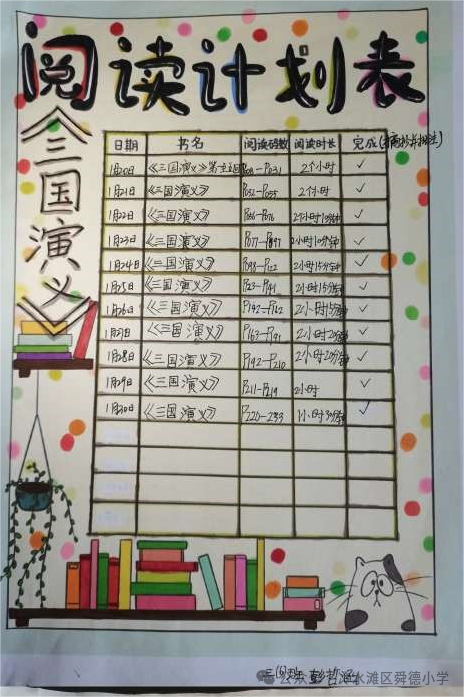 阅读计划表
《三国演义》
日期 书名 阅读码数 阅读时长 完成
1月20日 《三国演义》 P01-P031 2个小时 ✓
1月21日 《三国演义》 P32-P55 2个小时 ✓
1月22日 《三国演义》 P56-P76 2个小时10分钟 ✓
1月23日 《三国演义》 P077-P097 2小时10分钟 ✓
1月24日 《三国演义》 P098-P122 2小时15分钟 ✓
1月25日 《三国演义》 2小时15分钟 ✓
1月26日 《三国演义》 P142-P162 2小时15分钟 ✓
《三国演义》 P163-P191 2小时20分钟 ✓
1月28日 《三国演义》 P192-P210 2小时20分钟 ✓
1月29日 《三国演义》 P211-P219 2小时 ✓
1月30日 《三国演义》 P220-P233 1小时30分钟 ✓
三(6)班
公众号 水滩区舜德小学